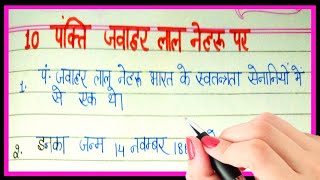 10 पंक्ति जवाहर लाल नेहरू पर
1. पं. जवाहर लाल नेहरू भारत के स्वतन्त्रता सेनानियों में
से एक थे।
2. इनका जन्म 14 नवम्बर